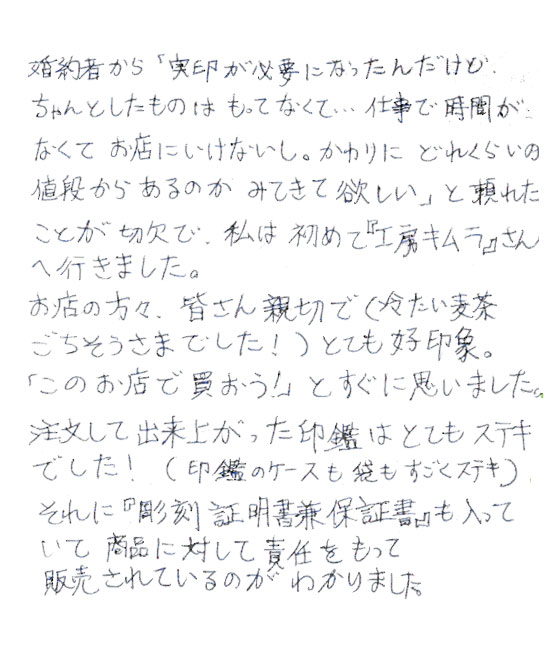 婚約者から「実印が必要になったんだけど、
ちゃんとしたものはもってなくて…仕事で時間が
なくてお店にいけないし。かわりにどれくらいの
値段からあるのかみてきて欲しい」と頼れた
ことが切欠で、私は初めて『工房キムラ』さん
へ行きました。
お店の方々、皆さん親切で(冷たい麦茶
ごちそうさまでした!)とても好印象。
「このお店で買おう!」とすぐに思いました。
注文して出来上がった印鑑はとてもステキ
でした!(印鑑のケースも袋もすごくステキ)
それに『彫刻証明書兼保証書』も入って
いて商品に対して責任をもって
販売されているのがわかりました。